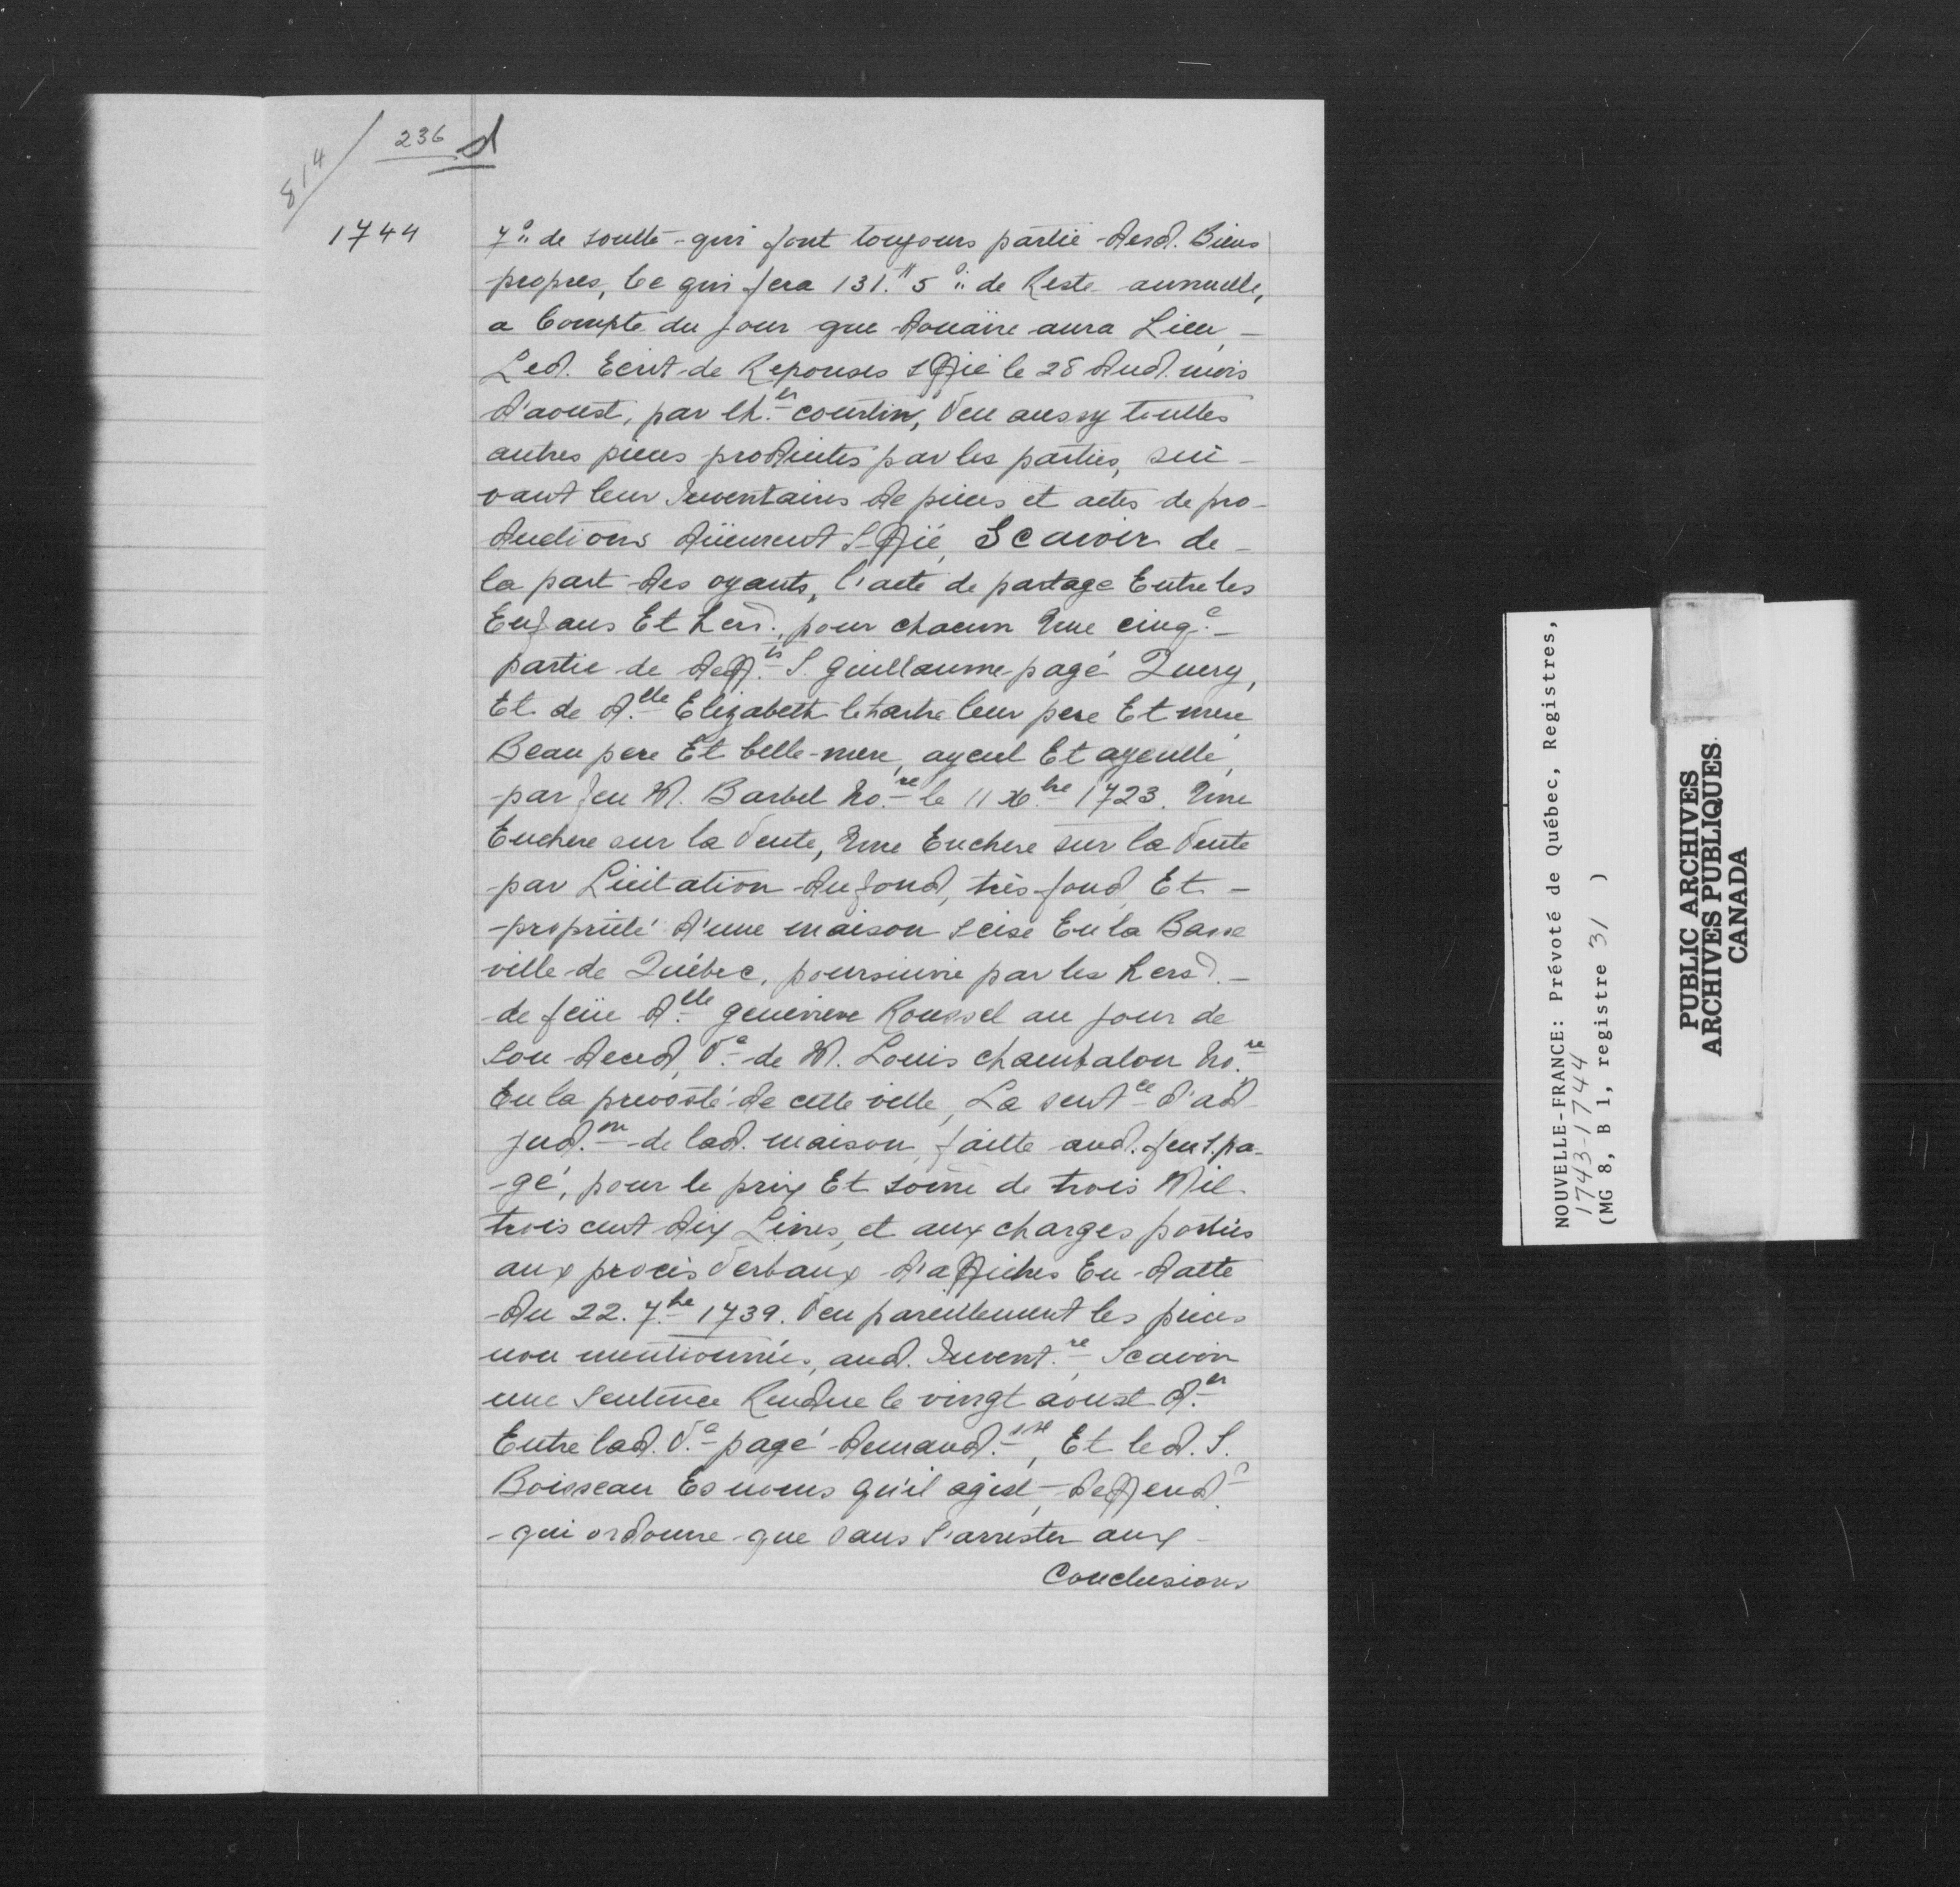 814
236 d
1744
7ˢ" de soulte qui font toujours partie desd. Biens
propres, Ce qui fera 131.ᴴ 5ˢ" de Reste annuelle,
a Compte du jour que douaire aura Lieu,
Led. Ecrit de Reponses sffié le 28 dud. mois
d'aoust, par ch.ᵉʳ courtin, Veu aussy touttes
autres pieces produites par les parties, sui-
vant leur Inventaires de pieces et actes de pro-
ductions düement Sffié, Scavoir de
la part des oyants, l'acte de partage Entre les
Enfans Et hers., pour chacun Une cinq.ᵉ
partie de deff.ᵗˢ S. Guillaume pagé Quercy,
Et de d.ᵉˡˡᵉ Elizabeth letartre leur pere Et mere,
Beau pere Et belle-mere, ayeul Et ayeulle,
par feu M. Barbel No.ʳᵉ le 11 Xbre 1723. Une
Enchere sur la Vente, Une Enchere sur la Vente
par Licitation du fond, très-fond Et
propriété d'une maison scise En la Basse
ville de Québec, poursuivie par les hers.
de feüe d.ᵉˡˡᵉ genevieve Roussel au jour de
son deced, V.ᵉ de M. Louis chambalon No.ʳᵉ
En la prevosté de cette ville, La sent.ᶜᵉ d'ad
jud.ᵒⁿ de lad. maison, faitte aud. feu S. pa-
gé, pour le prix Et some de trois Mil
trois cent dix Livres, et aux charges portées
aux procès Verbaux d'affiches En datte
du 22. 7.ᵇʳᵉ 1739. Veu pareillement les pieces
non mentionnées, aud. Invent.ʳᵉ, Scavoir
une Sentence Rendue le vingt aoust d.ᵉʳ
Entre lad. V.ᵉ pagé demand.ˢˢᵉ, Et led. S.
Boisseau Es noms qu'il agist, deffend.ʳ
qui ordonne que sans S'arrester aux
Conclusions
NOUVELLE-FRANCE: Prévoté de Québec, Registres,
1743-1744
(MG 8, B 1, registre 31 )
PUBLIC ARCHIVES
ARCHIVES PUBLIQUES
CANADA